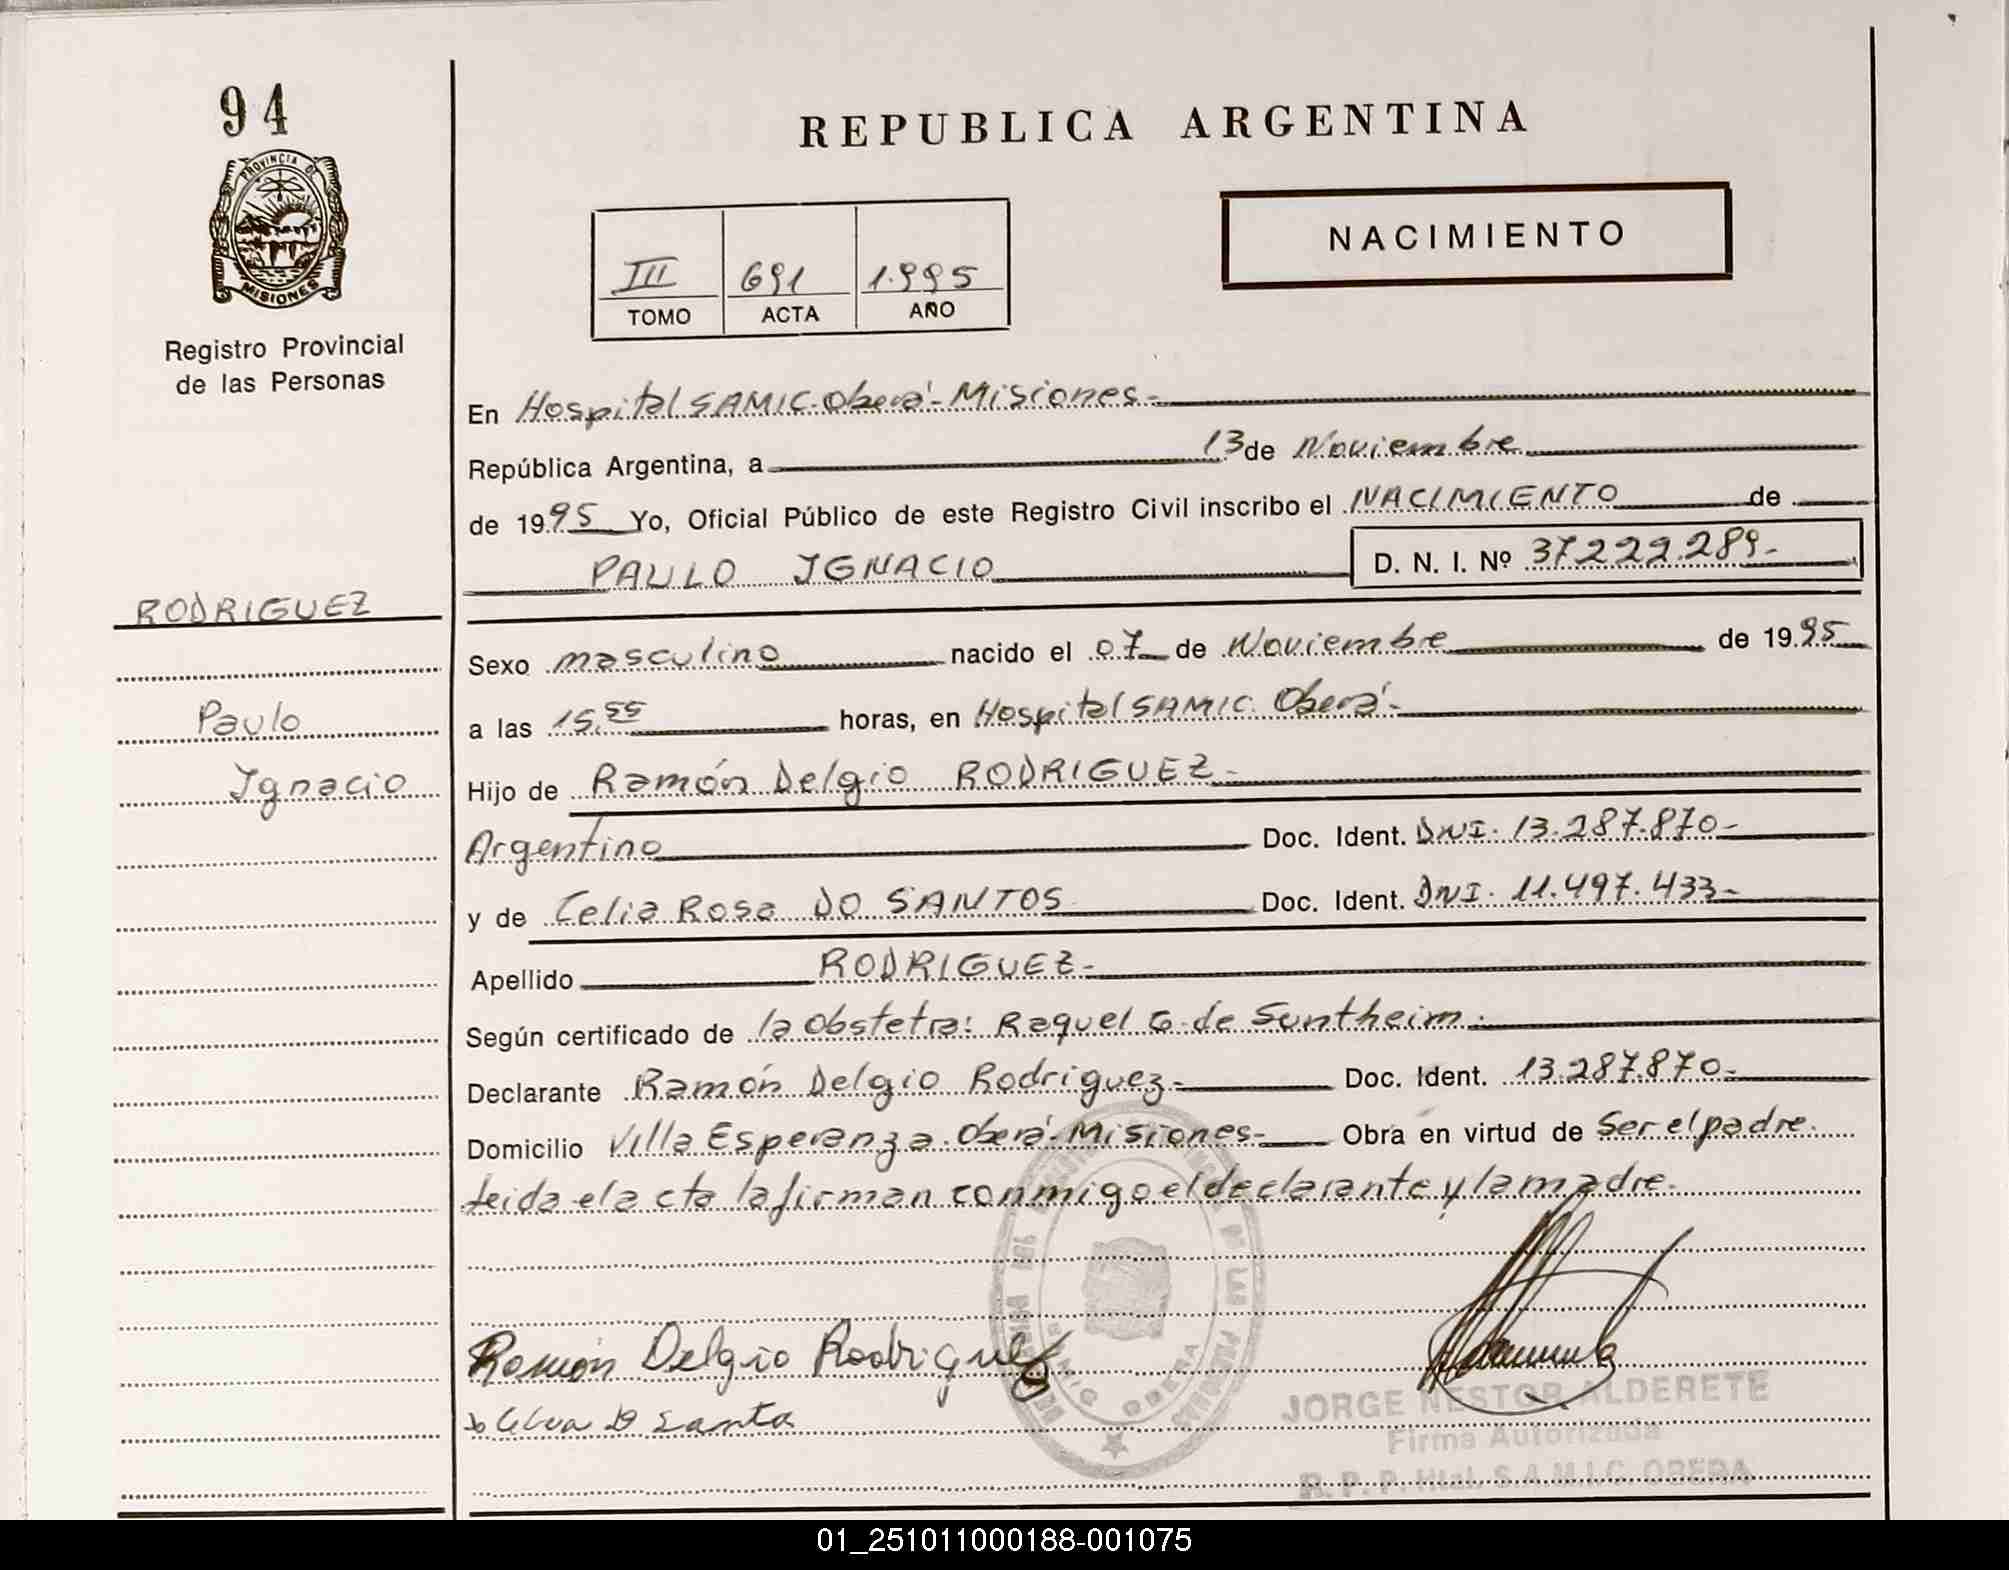 94
PROVINCIA DE
MISIONES
Registro Provincial
de las Personas
REPUBLICA ARGENTINA
NACIMIENTO
III 691 1.995
TOMO ACTA AÑO
En Hospital SAMIC-Oberá-Misiones-
República Argentina, a 13 de Noviembre
de 1995 Yo, Oficial Público de este Registro Civil inscribo el NACIMIENTO de
PAULO IGNACIO D. N. I. Nº 37.222.289-
RODRIGUEZ
Paulo
Ignacio
Sexo masculino nacido el 07 de Noviembre de 1995
a las 15,55 horas, en Hospital SAMIC. Oberá-
Hijo de Ramón Delgio RODRIGUEZ-
Argentino Doc. Ident. DNI. 13.287.870-
y de Celia Rosa DO SANTOS Doc. Ident. DNI. 11.497.433-
Apellido RODRIGUEZ-
Según certificado de la obstetra: Raquel G. de Suntheim.
Declarante Ramón Delgio Rodriguez- Doc. Ident. 13.287.870-
Domicilio Villa Esperanza. Oberá-Misiones- Obra en virtud de Ser el padre.
leida el acta la firman conmigo el declarante y la madre.
Ramón Delgio Rodriguez
JORGE NESTOR ALDERETE
Firma Autorizada
R. P. P. Htal. S.A.M.I.C. OBERA
01_251011000188-001075